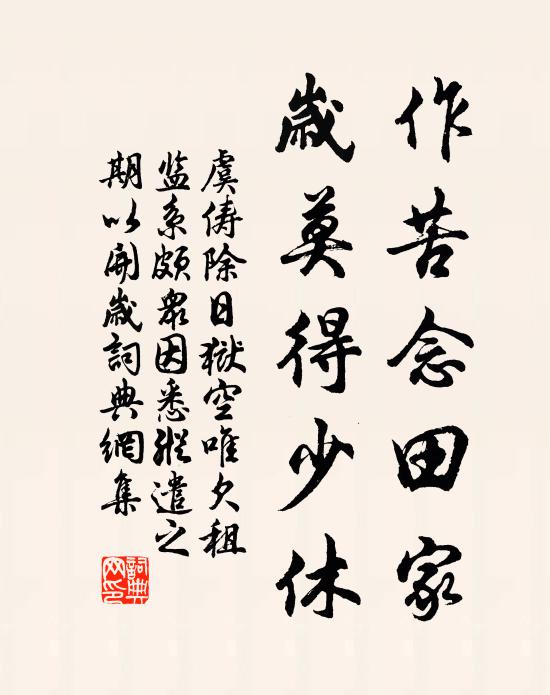 作苦念田家
歲莫得少休
虞俦除日獄空唯欠租
监系颇衆因悉縱遣之
期以開歲詞典網集
詞典
网印